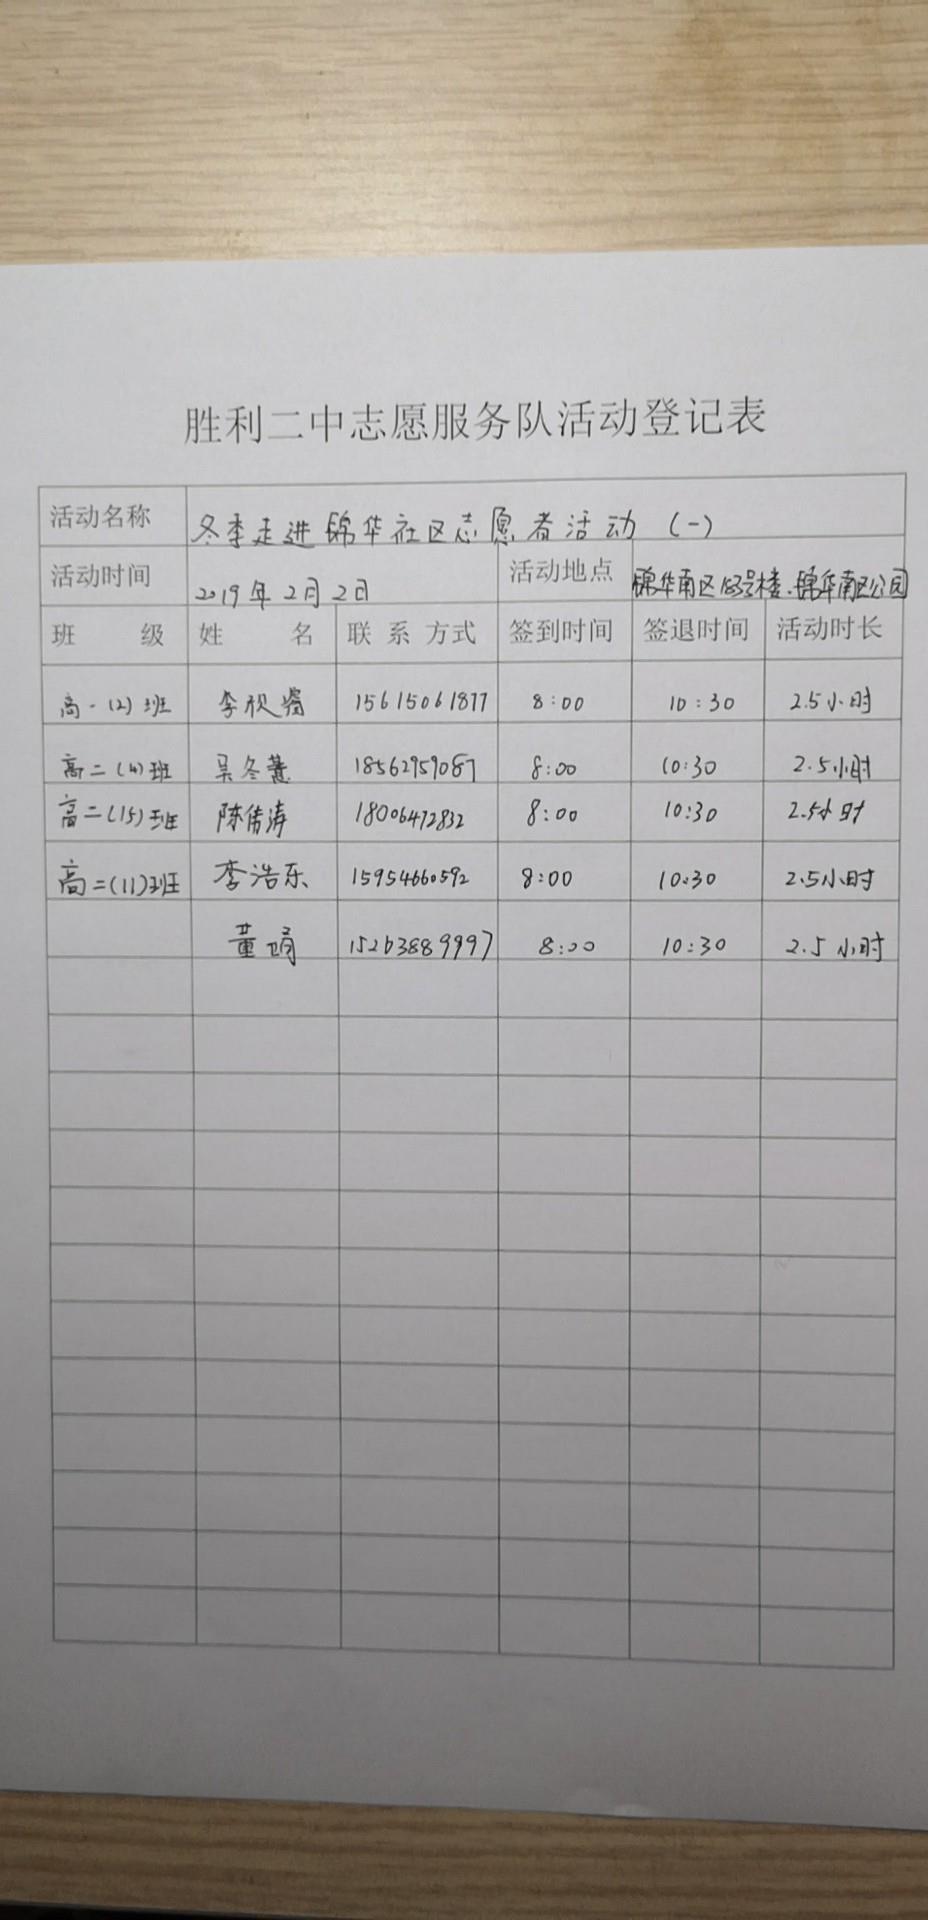 胜利二中志愿服务队活动登记表
活动名称 冬季走进锦华社区志愿者活动（一）
活动时间 2019年2月2日 活动地点 锦华南区183号楼、锦华南区公园
班 级 姓 名 联系方式 签到时间 签退时间 活动时长
高一(2)班 李祝睿 15615061877 8:00 10:30 2.5小时
高二(4)班 吴冬慧 18562959087 8:00 10:30 2.5小时
高二(15)班 陈倩涛 18006472832 8:00 10:30 2.5小时
高二(11)班 李浩东 15954660592 8:00 10:30 2.5小时
董娟 15263889997 8:00 10:30 2.5小时